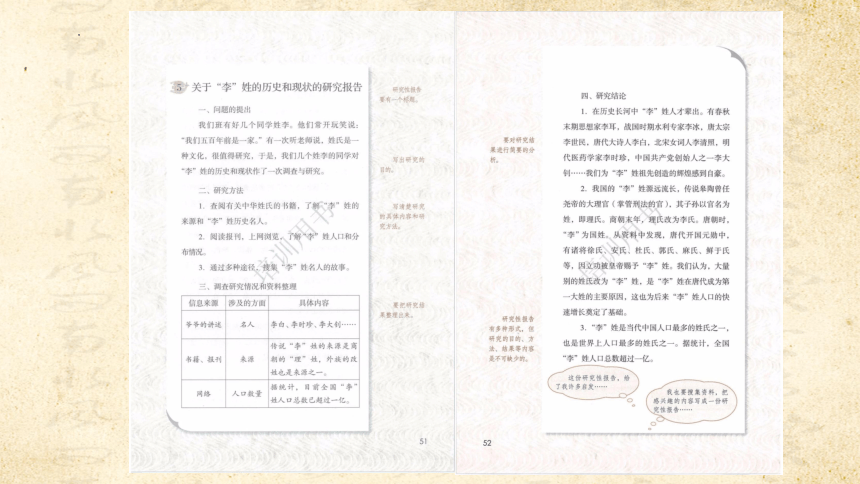 5 关于“李”姓的历史和现状的研究报告
一、问题的提出
我们班有好几个同学姓李。他们常开玩笑说：
“我们五百年前是一家。”有一次听老师说，姓氏是一
种文化，很值得研究，于是，我们几个姓李的同学对
“李”姓的历史和现状作了一次调查与研究。
二、研究方法
1．查阅有关中华姓氏的书籍，了解“李”姓的
来源和“李”姓历史名人。
2．阅读报刊，上网浏览，了解“李”姓人口和分
布情况。
3．通过多种途径，搜集“李”姓名人的故事。
三、调查研究情况和资料整理
信息来源 涉及的方面 具体内容
爷爷的讲述 名人 李白、李时珍、李大钊……
书籍、报刊 来源 传说“李”姓的来源是商
朝的“理”姓，外族的改
姓也是来源之一。
网络 人口数量 据统计，目前全国“李”
姓人口总数已超过一亿。
研究性报告
要有一个标题。
写出研究的
目的。
写清楚研究
的具体内容和研
究方法。
要把研究结
果整理出来。
培训用书
51
四、研究结论
1．在历史长河中“李”姓人才辈出。有春秋
末期思想家李耳，战国时期水利专家李冰，唐太宗
李世民，唐代大诗人李白，北宋女词人李清照，明
代医药学家李时珍，中国共产党创始人之一李大
钊……我们为“李”姓祖先创造的辉煌感到自豪。
2．我国的“李”姓源远流长，传说皋陶曾任
尧帝的大理官（掌管刑法的官），其子孙以官名为
姓，即理氏。商朝末年，理氏改为李氏。唐朝时，
“李”为国姓。从资料中发现，唐代开国元勋中，
有诸将徐氏、安氏、杜氏、郭氏、麻氏、鲜于氏
等，因立功被皇帝赐予“李”姓。我们认为，大量
别的姓氏改为“李”姓，是“李”姓在唐代成为第
一大姓的主要原因，这也为后来“李”姓人口的快
速增长奠定了基础。
3．“李”姓是当代中国人口最多的姓氏之一，
也是世界上人口最多的姓氏之一。据统计，全国
“李”姓人口总数超过一亿。
要对研究结
果进行简要的分
析。
研究性报告
有多种形式，但
研究的目的、方
法、结果等内容
是不可缺少的。
培训用书
这份研究性报告，给
了我许多启发……
我也要搜集资料，把
感兴趣的内容写成一份研
究性报告……
52